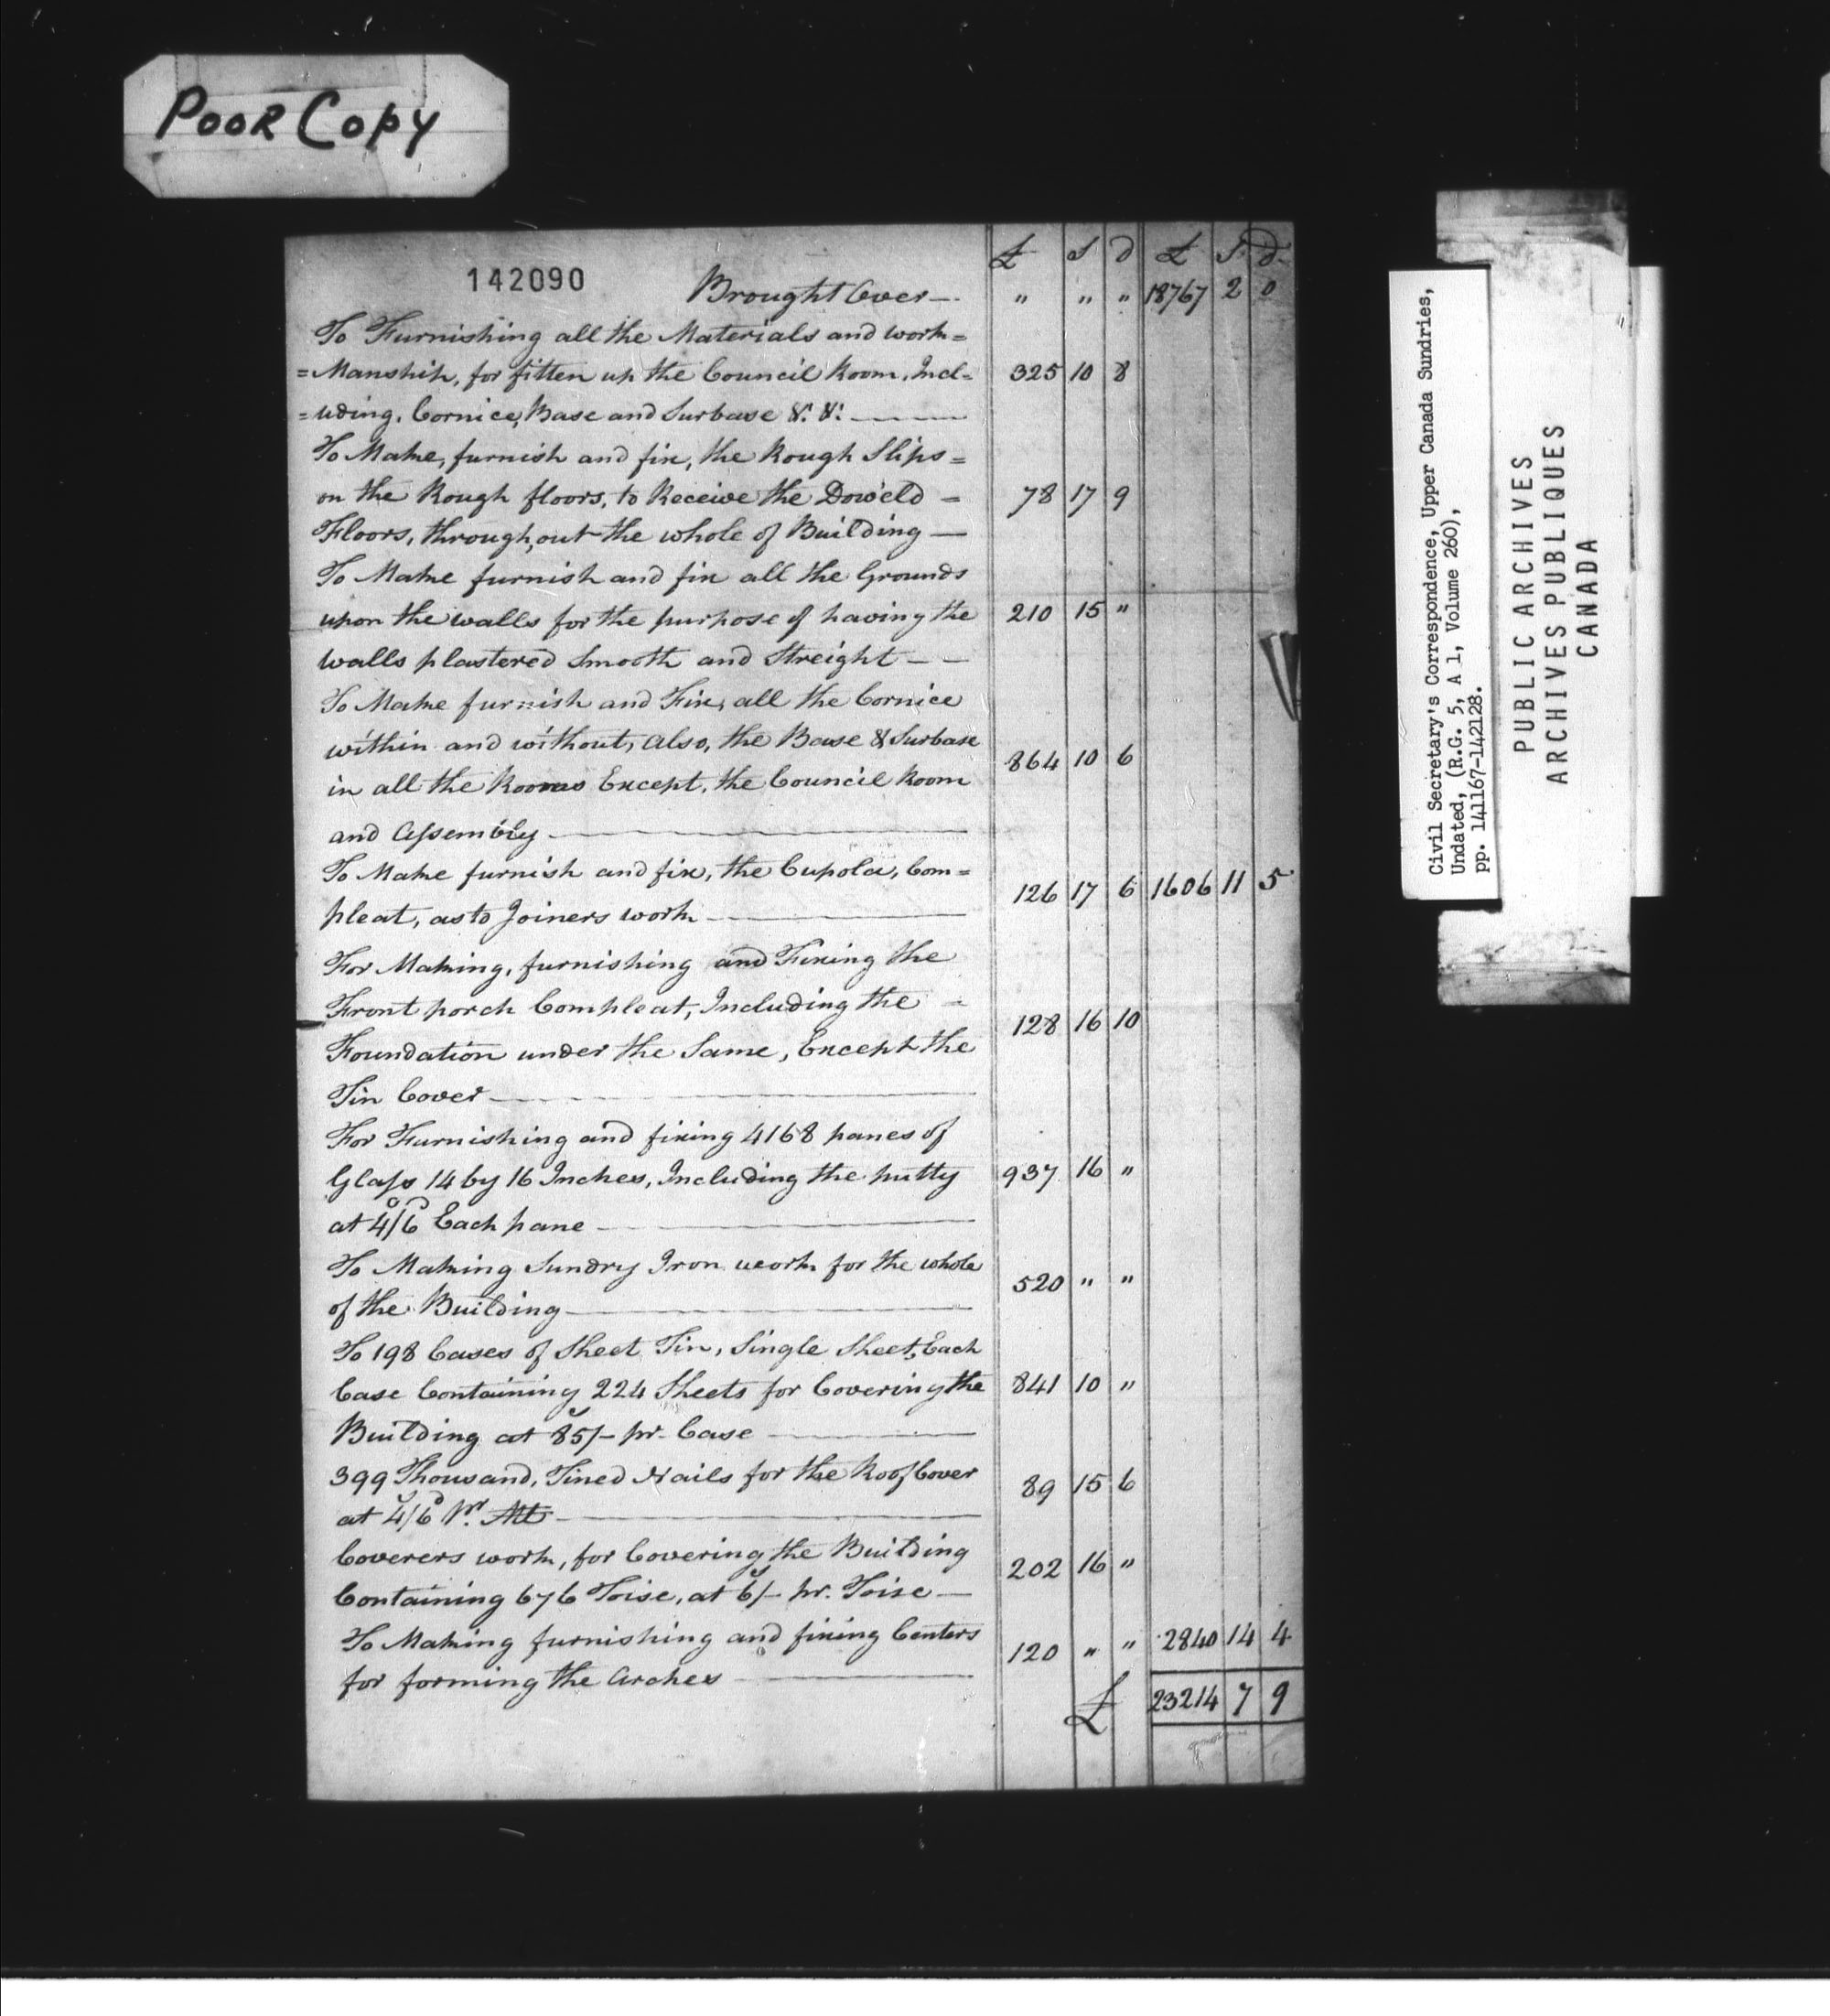 POOR Copy
142090
£ S d £ S. d.
Brought Over — " " " 18767 2 0
To Furnishing all the Materials and work=
=Manship, for fitten up the Council Room, Incl= 325 10 8
=uding, Cornice, Base and Surbase &c. &c.
To Make, furnish and fix, the Rough Slips =
on the Rough floors, to Receive the Dow'eld = 78 17 9
Floors, through,out the whole of Building —
To Make furnish and fix all the Grounds
upon the walls for the purpose of having the 210 15 "
walls plastered Smooth and Streight — —
To Make furnish and Fix, all the Cornice
within and without, also, the Base & Surbase 864 10 6
in all the Rooms Except, the Council Room
and Assembly
To Make furnish and fix, the Cupola, Com= 126 17 6 1606 11 5
pleat, as to Joiners work
For Making, furnishing and Fixing the
Front porch Compleat, Including the 128 16 10
Foundation under the Same, Except the
Tin Cover
For Furnishing and fixing 4168 panes of
Glass 14 by 16 Inches, Including the putty 937 16 "
at 4s/6d Each pane
To Making Sundry Iron work for the whole 520 " "
of the Building
To 198 Cases of Sheet Tin, Single Sheet, Each
Case Containing 224 Sheets for Covering the 841 10 "
Building at 85s/- pr. Case
399 Thousand, Tined Nails for the Roof Cover 89 15 6
at 4s/6d Pr. Mt
Coverers work, for Covering the Building 202 16 "
Containing 676 Toise, at 6s/- pr. Toise —
To Making furnishing and fixing Centers 120 " " 2840 14 4
for forming the Arches
£ 23214 7 9
Civil Secretary's Correspondence, Upper Canada Sundries,
Undated, (R.G. 5, A 1, Volume 260),
pp. 141167-142128.
PUBLIC ARCHIVES
ARCHIVES PUBLIQUES
CANADA